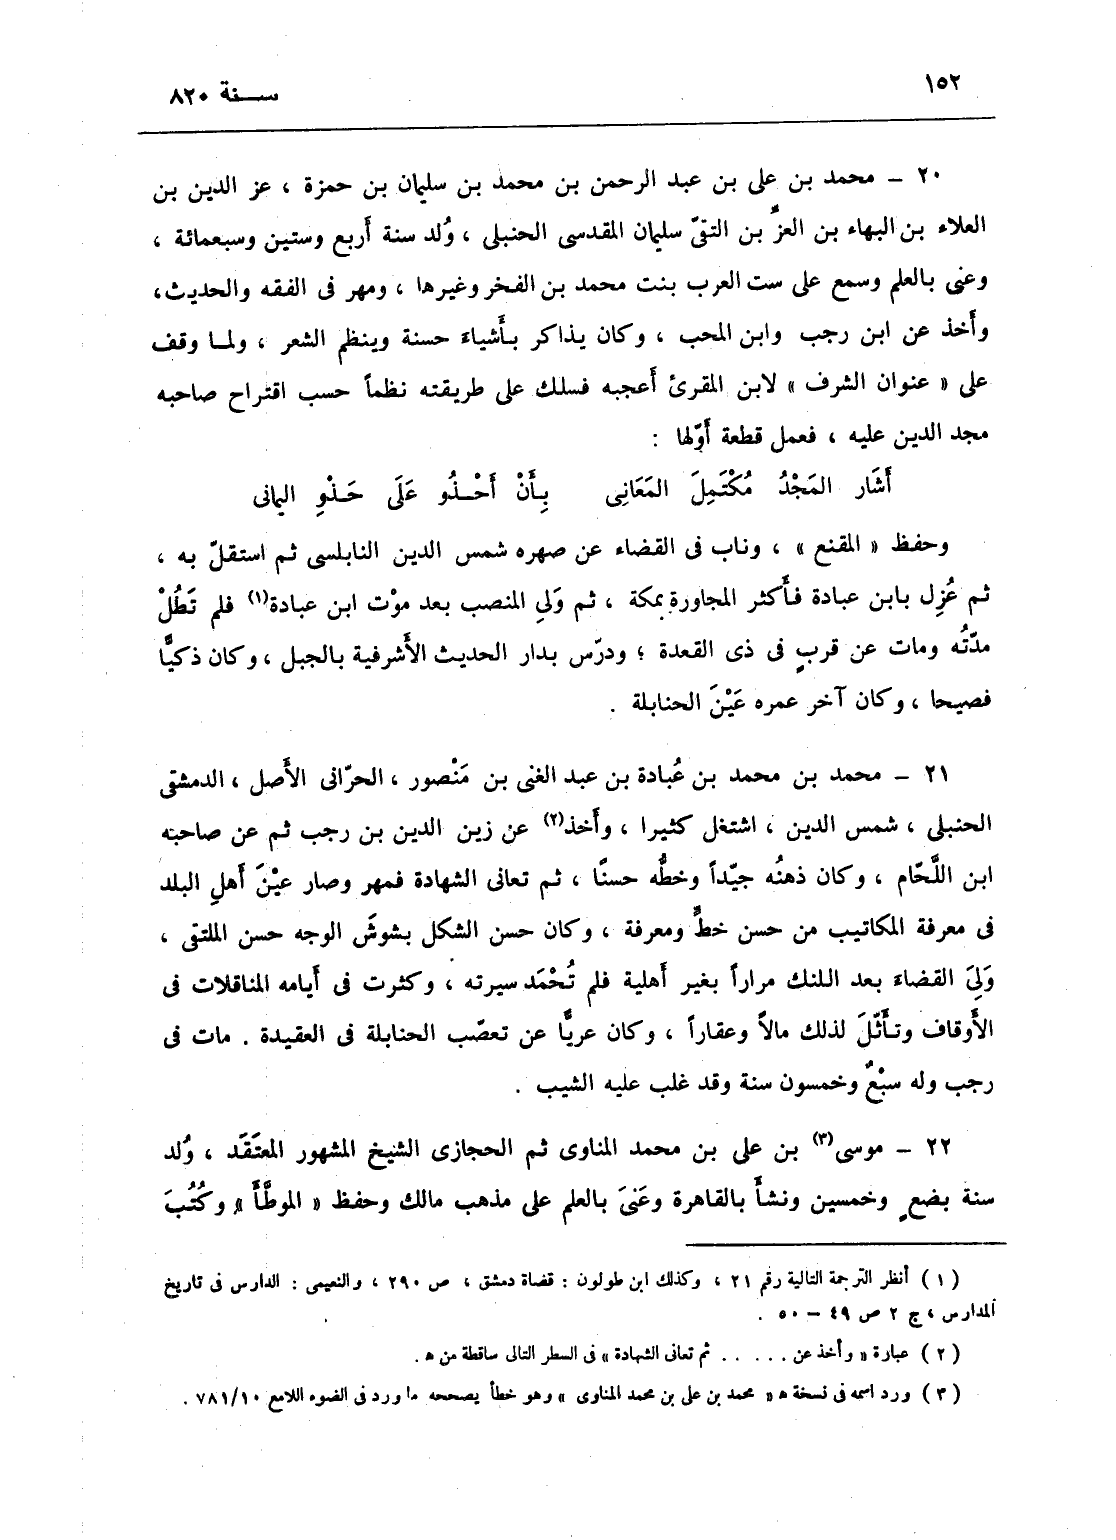 ١٥٢
سنة ٨٢٠
٢٠ ـ محمد بن على بن عبد الرحمن بن محمد بن سليمان بن حمزة ، عز الدين بن
العلاء بن البهاء بن العزِّ بن التقىّ سليمان المقدسى الحنبلى ، وُلد سنة أَربع وستين وسبعمائة ،
وعنى بالعلم وسمع على ست العرب بنت محمد بن الفخر وغيرها ، ومهر فى الفقه والحديث ،
وأَخذ عن ابن رجب وابن المحب ، وكان يذاكر بأَشياءَ حسنة وينظم الشعر ، ولما وقف
على « عنوان الشرف » لابن المقرئ أَعجبه فسلك على طريقته نظماً حسب اقتراح صاحبه
مجد الدين عليه ، فعمل قطعة أَوّلها :
أَشَار المَجْدُ مُكْتَمِلَ المَعَانِى بِأَنْ أَحْذُو عَلَى حَذْوِ اليمانى
وحفظ « المقنع » ، وناب فى القضاء عن صهره شمس الدين النابلسى ثم استقلّ به ،
ثم عُزِل بابن عبادة فأَكثر المجاورة بمكة ، ثم وَلىِ المنصب بعد موْت ابن عبادة(١) فلم تَطُلْ
مدّتُه ومات عن قربٍ فى ذى القعدة ؛ ودرّس بدار الحديث الأَشرفية بالجبل ، وكان ذكيًّا
فصيحا ، وكان آخر عمره عَيْنَ الحنابلة .
٢١ ـ محمد بن محمد بن عُبادة بن عبد الغنى بن مَنْصور ، الحرّانى الأَصل ، الدمشقى
الحنبلى ، شمس الدين ، اشتغل كثيرا ، وأَخذ(٢) عن زين الدين بن رجب ثم عن صاحبه
ابن اللَّحّام ، وكان ذهنُه جيّداً وخطُّه حسنًا ، ثم تعانى الشهادة فمهر وصار عيْنَ أَهلِ البلد
فى معرفة المكاتيب من حسن خطٍّ ومعرفة ، وكان حسن الشكل بشوشَ الوجه حسن الملتقى ،
وَلِىَ القضاءَ بعد اللنك مراراً بغير أَهلية فلم تُحْمَد سيرته ، وكثرت فى أَيامه المناقلات فى
الأَوقاف وتأَثّلَ لذلك مالاً وعقاراً ، وكان عريًّا عن تعصّب الحنابلة فى العقيدة . مات فى
رجب وله سبْعٌ وخمسون سنة وقد غلب عليه الشيب .
٢٢ ـ موسى(٣) بن على بن محمد المناوى ثم الحجازى الشيخ المشهور المعتَقَد ، وُلد
سنة بضعٍ وخمسين ونشأَ بالقاهرة وعَنىَ بالعلم على مذهب مالك وحفظ « الموطَّأَ » وكُتُبَ
( ١ ) أنظر الترجمة التالية رقم ٢١ ، وكذلك ابن طولون : قضاة دمشق ، ص ٢٩٠ ، والنعيمى : الدارس فى تاريخ
المدارس ، ج ٢ ص ٤٩ – ٥٠ .
( ٢ ) عبارة « وأخذ عن . . . . . ثم تعانى الشهادة » فى السطر التالى ساقطة من ه .
( ٣ ) ورد اسمه فى نسخة ه « محمد بن على بن محمد المناوى » وهو خطأ يصححه ما ورد فى الضوء اللامع ٧٨١/١٠ .